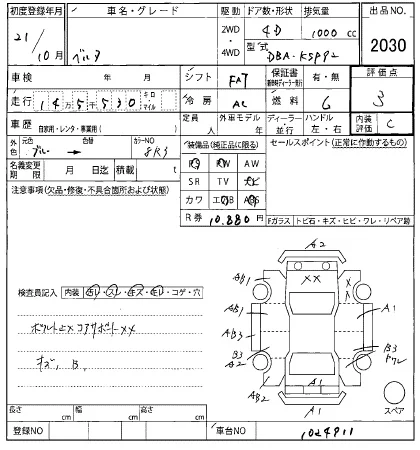 初度登録年月 車名・グレード 駆動 ドア数・形状 排気量 出品NO.
21/10月 ベルタ 2WD・4WD 4D 1000cc 2030
型式 DBA-KSP92
車検 年 月 シフト FAT 保証書 有・無 評価点
走行 14万5千530 キロ マイル 冷房 AC 燃料 G 3
車歴 自家用・レンタ・事業用( ) 定員 人 外車モデル 年 ディーラー・並行 ハンドル 左・右 内装評価 C
外色 元色 ブルー → 色替 カラーNO 8R3 装備品(純正品に限る) セールスポイント(正常に作動するもの)
名義変更期限 月 日迄 積載 t PS PW AW
注意事項(欠品・修復・不具合箇所および状態) SR TV ナビ
カワ エアB ABS
R券 10,880円 Fガラス トビ石・キズ・ヒビ・ワレ・リペア跡
A2
AB1 XX X X
検査員記入 内装 キレ・スレ・キズ・ヨレ・コゲ・穴
AB1 A1
AB3
B3 A2 B3 ワレ
キズ、B.
AB2 A1
A1 スペア
長さ cm 幅 cm 高さ cm
登録NO 車台NO 1024911